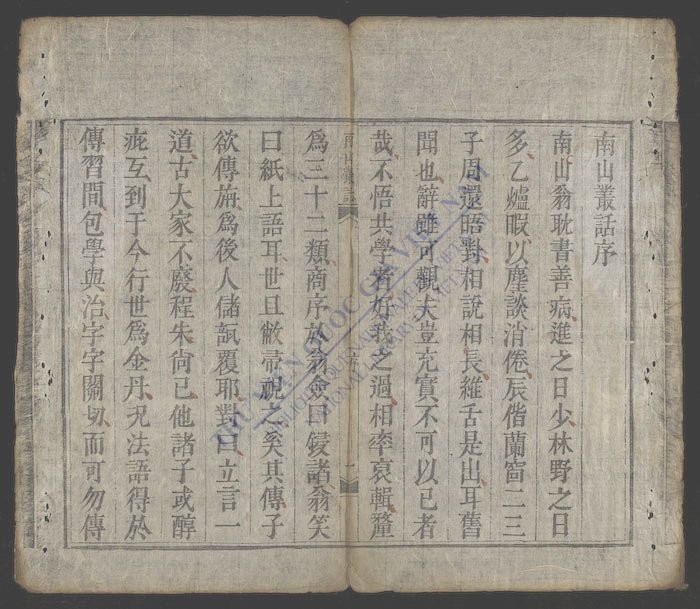 南山叢話序
南山翁耽書善病進之日少林野之日
多乙爐暇以麈談消倦辰偕蘭窗二三
子周還晤對相說相長維舌是出耳舊
聞也辭雖可觀夫豈充實不可以已者
哉不悟共學者好我之過相率裒輯釐
為三十二類商序於翁僉曰鋟諸翁笑
曰紙上語耳世且敝帚視之奚其傳子
欲傳旃為後人儲瓿覆耶對曰立言一
道古大家不廢程朱尚已他諸子或醇
疵互到于今行世為金丹況法語得於
傳習間包學與治字字關切而可勿傳
南山叢話
序
一
THƯ VIỆN QUỐC GIA VIỆT NAM
BIBLIOTHÈQUE NATIONALE DU VIETNAM
NATIONAL LIBRARY OF VIETNAM